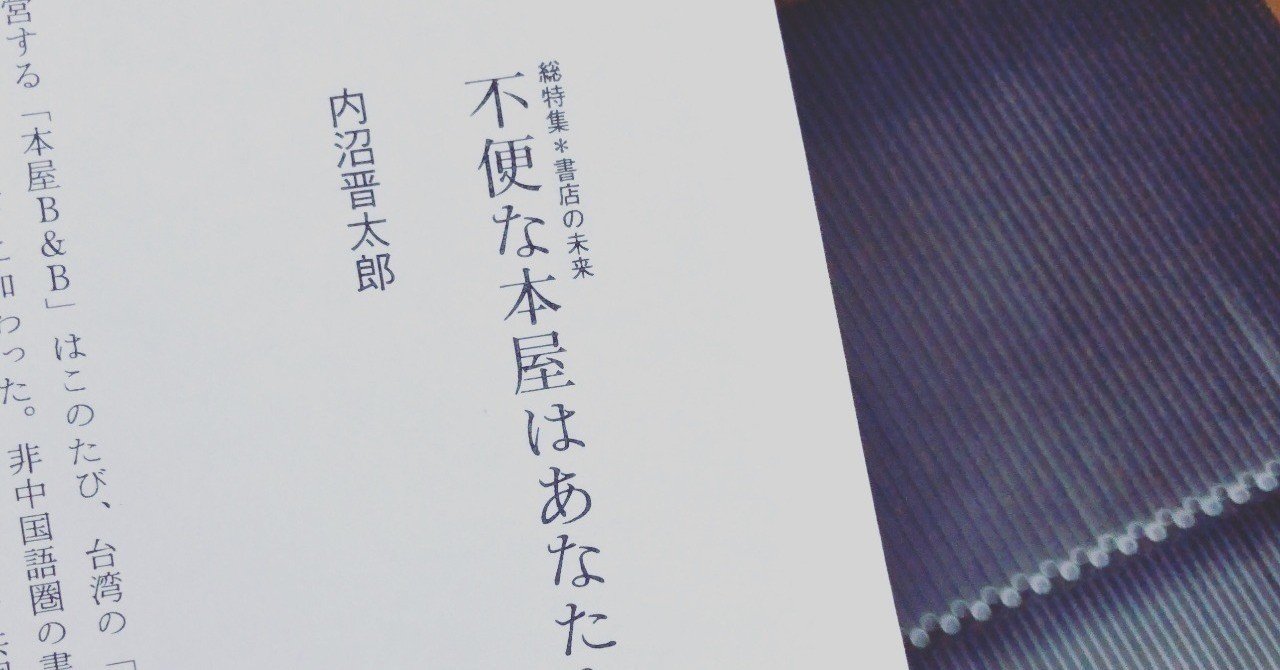 総特集＊書店の未来
不便な本屋はあなた
内沼晋太郎
営する「本屋B&B」はこのたび、台湾の「
に加わった。非中国語圏の書